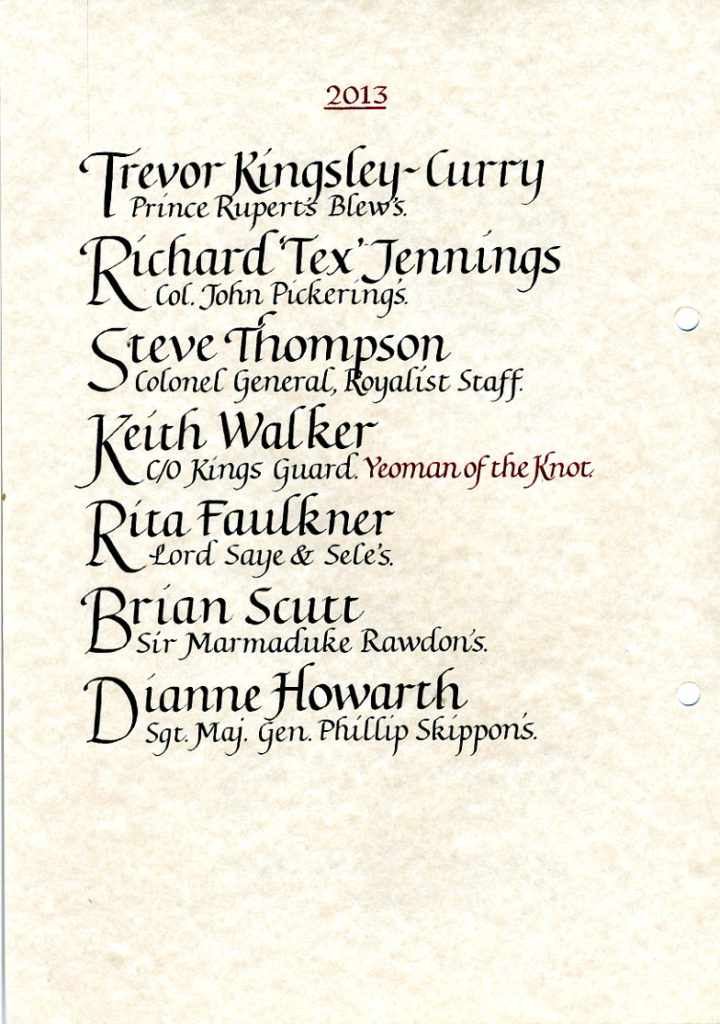 2013
Trevor Kingsley-Curry
Prince Rupert's Blew's.
Richard 'Tex' Jennings
Col. John Pickering's.
Steve Thompson
Colonel General, Royalist Staff.
Keith Walker
C/O Kings Guard. Yeoman of the Knot.
Rita Faulkner
Lord Saye & Sele's.
Brian Scutt
Sir Marmaduke Rawdon's.
Dianne Howarth
Sgt. Maj. Gen. Phillip Skippon's.